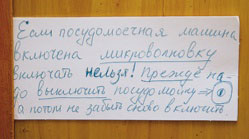 Если посудомоечная машина
включена микроволновку
включать нельзя! Прежде на-
до выключить посудомойку→①
а потом не забыть снова включить.